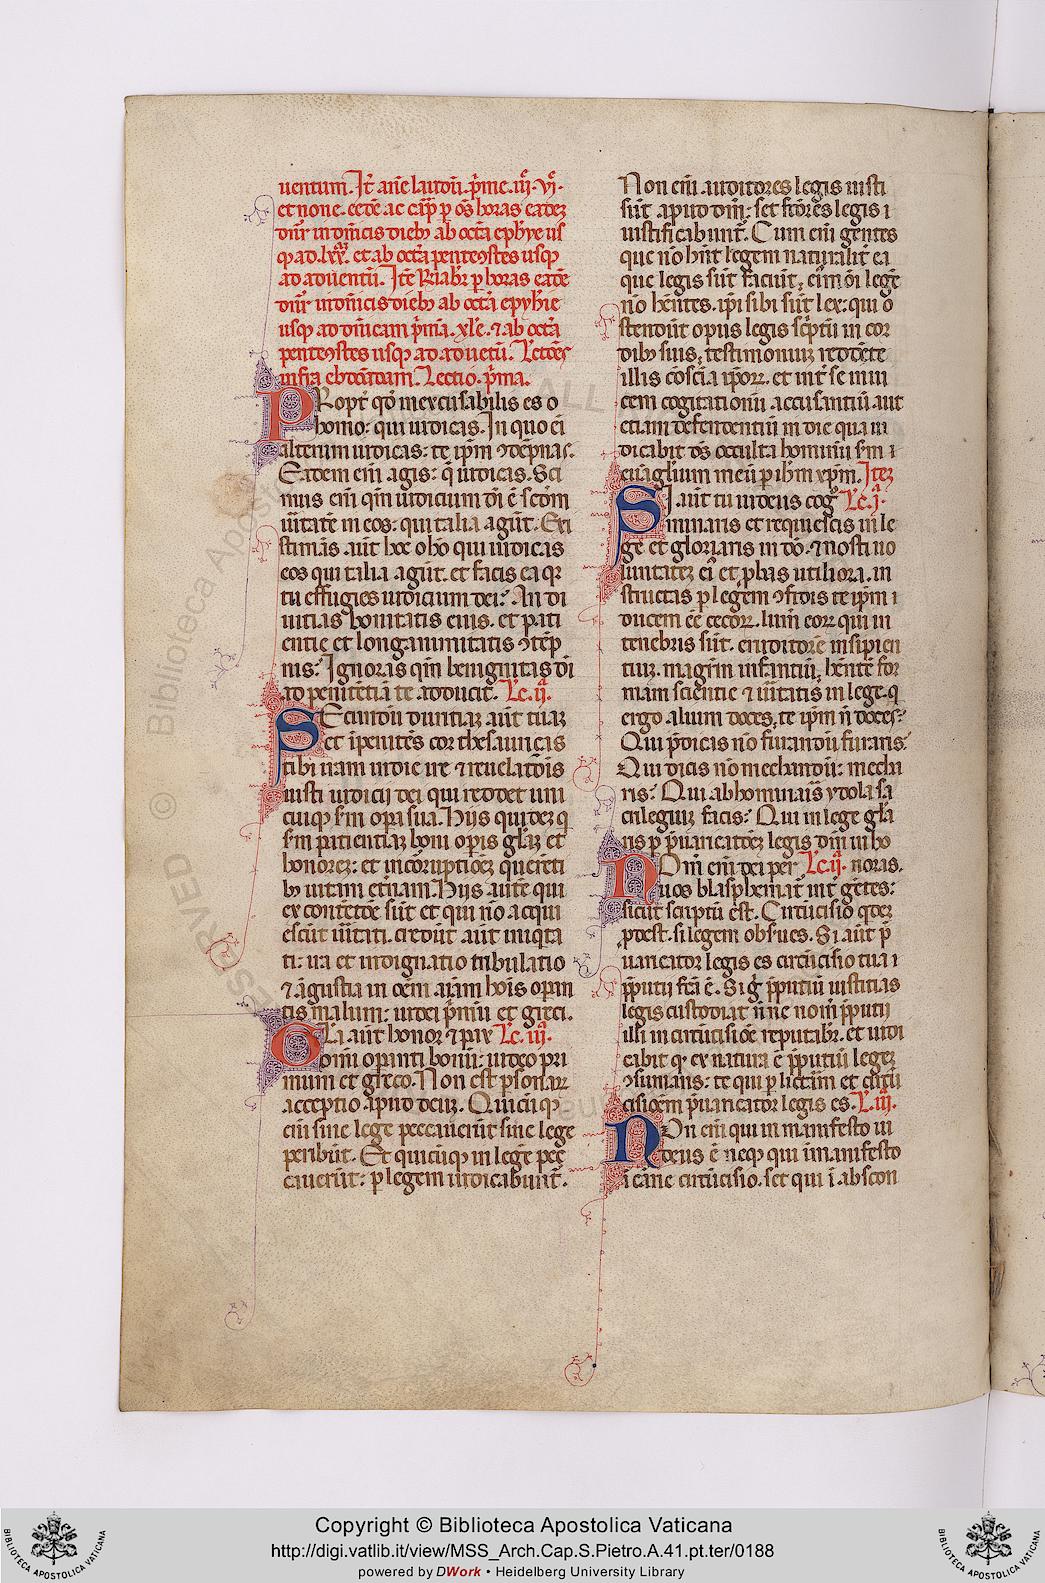 uentum. It̄ añe laudū. p̄me. iij̄. vj̄.
et none. eedē ac cap̄ p oēs horas eædē
diñr in dñicis dieb9 ab octā epyh̄ye us
q3 ad .lxx̄. et ab octā pentecostes usq3
ad aduentū. Itē R̄iabr̄ p horas eædē
diñr in dñicis dieb9 ab octā epyh̄ie
usq3 ad dñicam p̄mā .xl̄e. ⁊ ab octā
pentecostes usq3 ad aduētū. Lectōes
infra ebdōdam. Lectio p̄ma.
PRopt̄ qđ inexcusabilis es o
homo: qui iudicas. In quo ei
alterum iudicas: te ip̄m ꝯdēpnas.
Eadem eni agis: q̄ iudicas. Sci
mus eni qm̄ iudicium dī ē scdm
uītatē in eos: qui talia agūt. Exi
stimas aut hoc oho qui iudicas
eos qui talia agūt. et facis ea qr
tu effugies iudicium dei: An di
uitias bonitatis eius. et pati
entie et longanimitatis ꝯtēp
nis: Ignoras qm̄ benignitas dī
ad penitētiā te adducit. Lc̄. ij̄.
SEcundū duritiaz aut tuaz
et ipenitēs cor thesaurizas
tibi iram in die ire ⁊ reuelatōis
iusti iudicij dei qui reddet uni
cuiq3 sm opa sua. Hijs quidez q
sm patientiaz boni opis gl̄az et
honorez: et incorruptiōez querēti
b9 uitam et̄nam. Hijs autē qui
ex contētōe sūt et qui nō acqui
escūt uītati. credūt aut iniqta
ti: ira et indignatio tribulatio
⁊ āgustia in oēm aiam hois opan
tis malum: iudei p̄mū et greci.
GL̄ia aut honor ⁊ pax Lc̄. iij̄.
omi opanti bonū: iudeo pri
mum et greco. Non est psonar
acceptio apud deuz. Quicūq3
eni sine lege peccauerūt sine lege
peribūt. Et quicūq3 in lege pec
cauerūt: p legem iudicabunt̄.
Non eni auditores legis iusti
sūt apud dm̄: set fc̄tores legis i
iustificabunt̄. Cum eni gentes
que nō hn̄t legem naturalit̄ ea
que legis sūt faciūt, ei9mōi legē
nō hn̄tes. ip̄i sibi sūt lex: qui o
stendūt opus legis sc̄ptū in cor
dib9 suis, testimoniuz reddēte
illis cōsc̄ia ipoꝝ. et int̄ se inui
cem cogitationū accusantiū aut
etiam defendentiū in die qua iu
dicabit ds̄ occulta hominū sm i
euāgl̄ium meū p ih̄m xp̄m. Itez
SI aūt tu iudeus cog Lc̄. j̄.
minaris et requiescis in le
ge et gloriaris in dō. ⁊ nosti uo
luntatez ei9 et pbas utiliora. in
structus p legem ꝯfidis teip̄m i
ducem eē cecoꝝ. lumē eoꝝ qui in
tenebris sūt. eruditorē insipien
tiuz. magr̄m infantiū, hn̄tē for
mam scientie ⁊ uītatis in lege. q
ergo alium doces, te ip̄m n̄ doces:
Qui p̄dicas nō furandū furaris:
Qui dicis nō mechandū: mecha
ris: Qui abhominaris ydola sa
crilegiuz facis: Qui in lege gl̄a
ris p p̄uaricatōez legis dm̄ in ho
NOm̄ eni dei per Lc̄. ij̄. noras.
uos blasphemat̄ int̄ gētes:
sicut scriptū est. Circūcisio q̄dez
pdest. si legem obs̄ues. Si aut p̄
uaricator legis es circūcisio tua i
p̄putiū fc̄a ē. Sig̾ p̄putiū iustitias
legis custodiat n̄ne nom̄ p̄putiū
illi in circūcisiōē reputabr̄. et iudi
cabit qđ ex natura ē p̄putiū legez
ꝯsumans: te qui p lit̄am et circū
cisiōem p̄uaricator legis es. L. iij̄.
NOn eni qui in manifesto iu
deus ē neq3 qui in manifesto
i carne circūcisio. set qui i abscon
Copyright © Biblioteca Apostolica Vaticana
http://digi.vatlib.it/view/MSS_Arch.Cap.S.Pietro.A.41.pt.ter/0188
powered by DWork • Heidelberg University Library